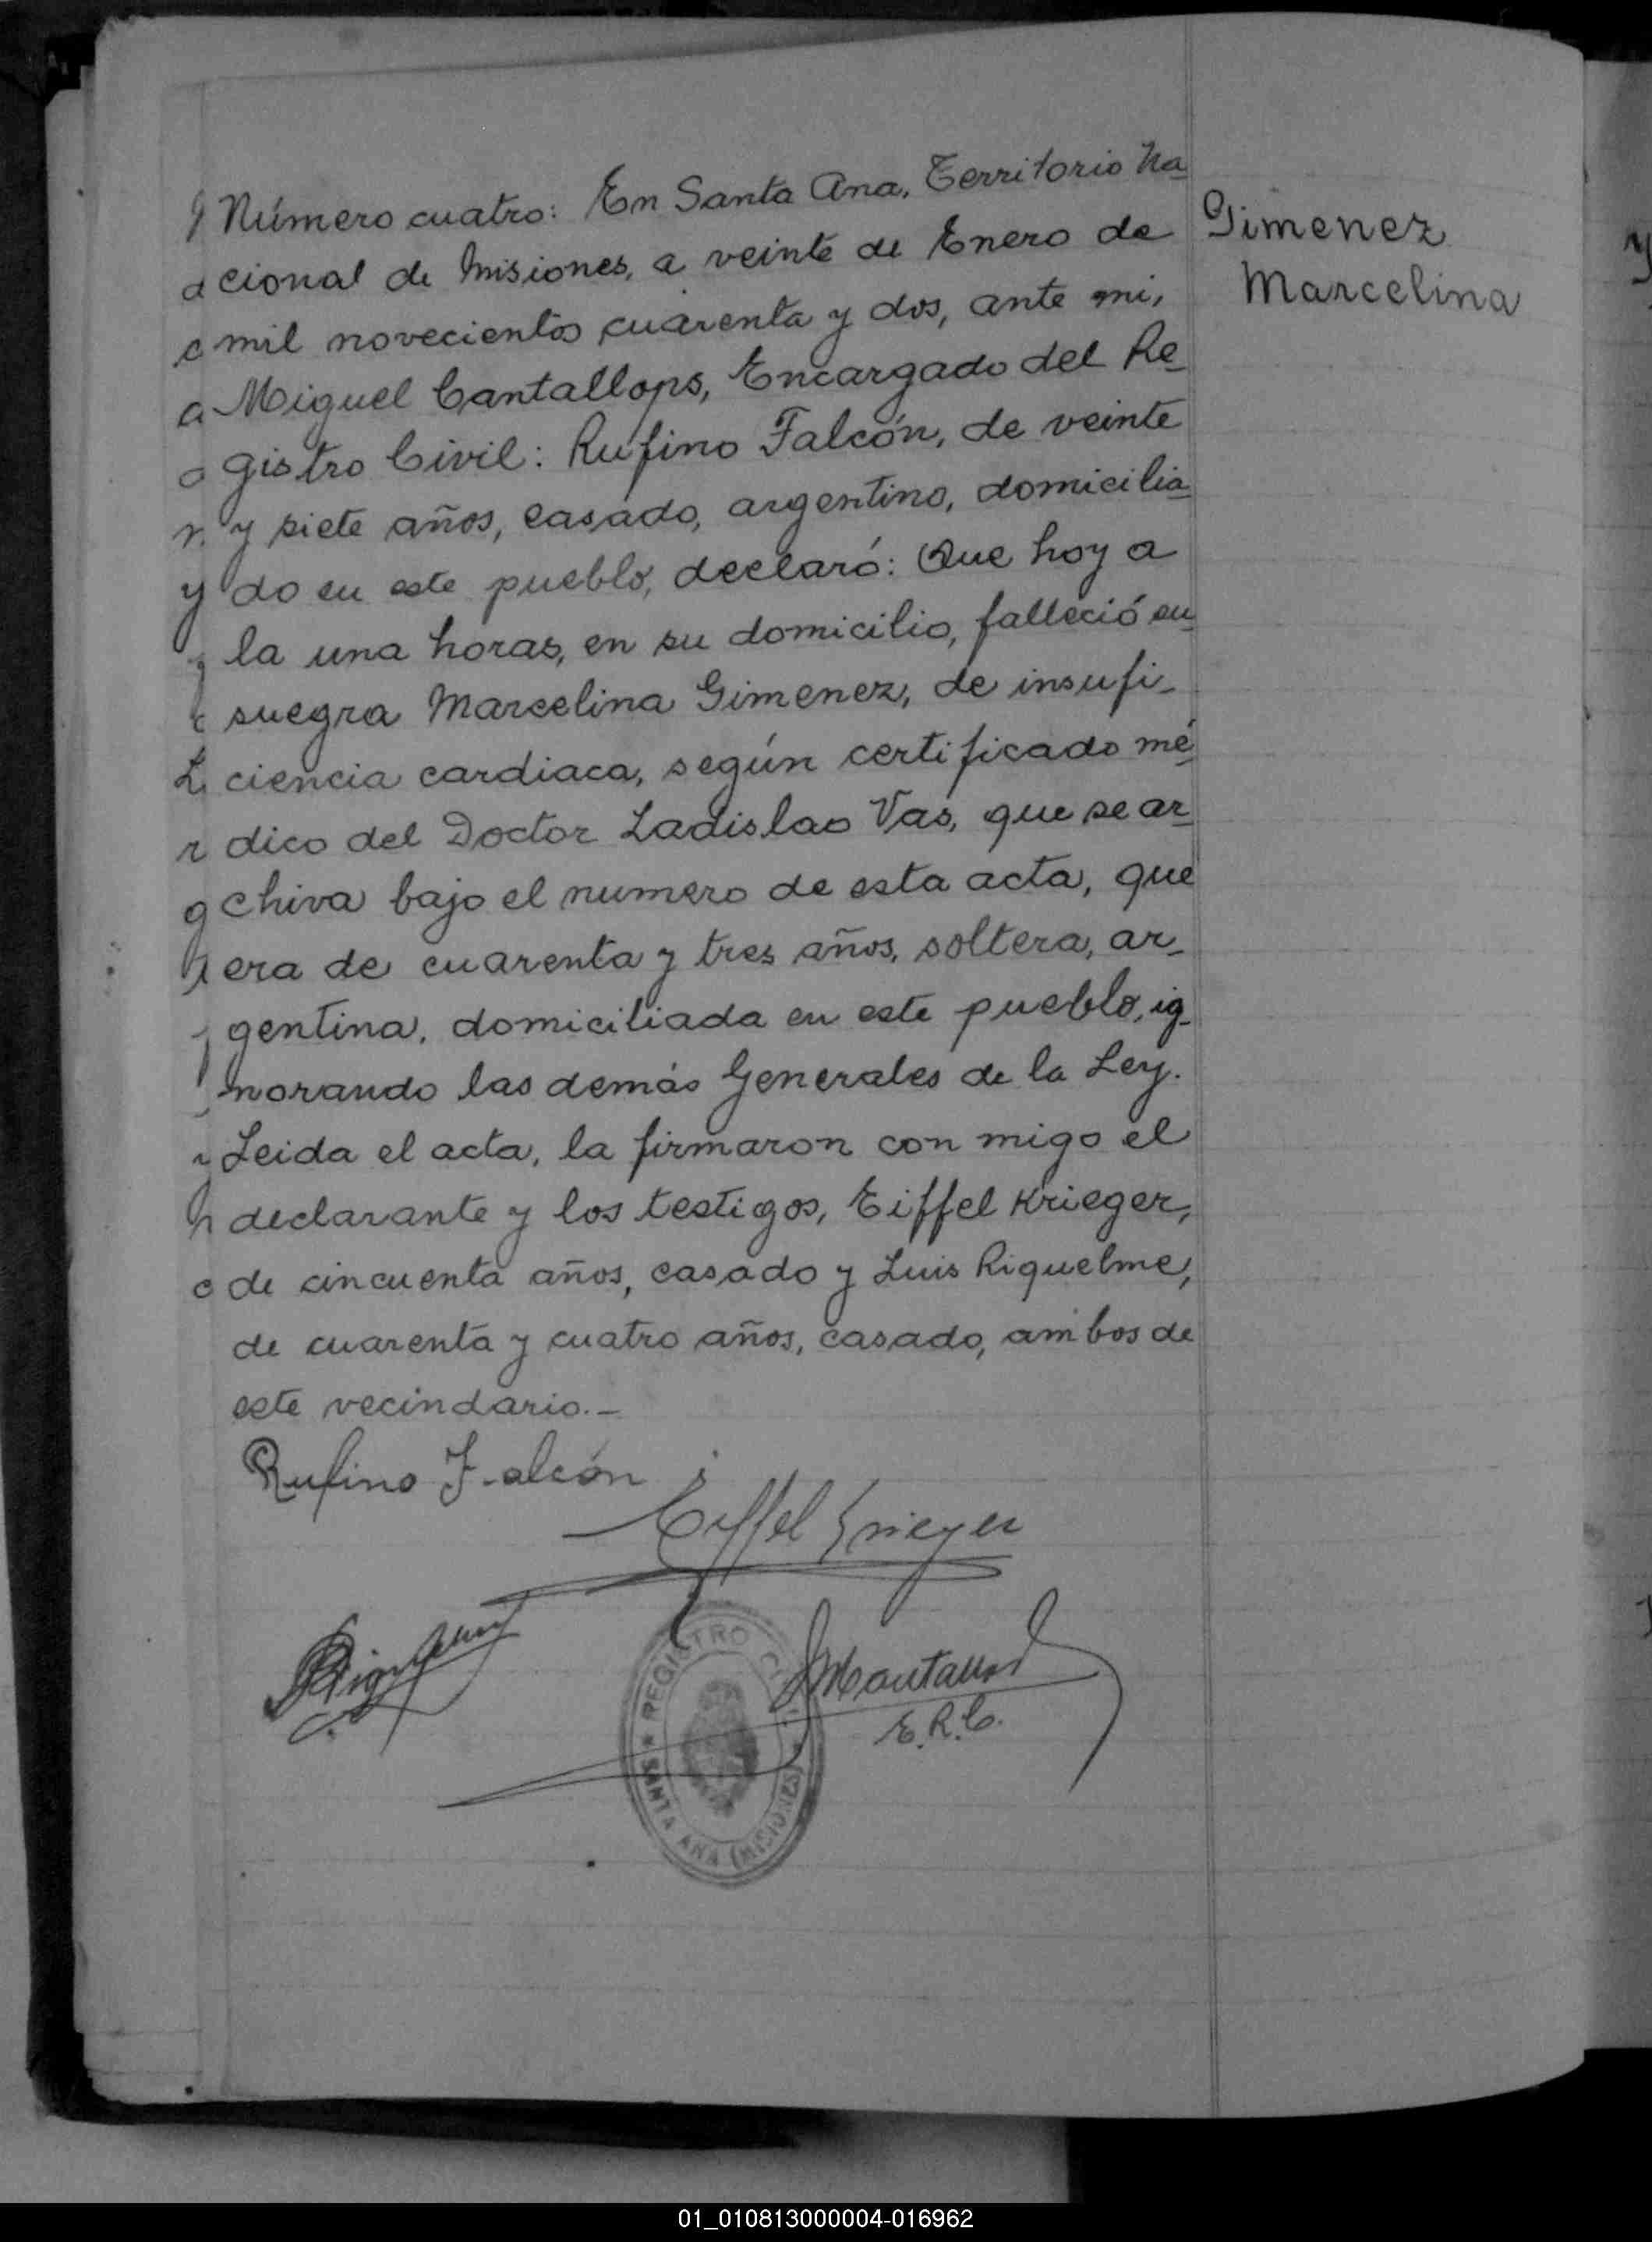 Número cuatro: En Santa Ana, Territorio Na
cional de Misiones, a veinte de Enero de
mil novecientos cuarenta y dos, ante mi,
Miguel Cantallops, Encargado del Re
gistro Civil: Rufino Falcón, de veinte
y siete años, casado, argentino, domicilia
do en este pueblo, declaró: Que hoy a
la una horas, en su domicilio, falleció su
suegra Marcelina Gimenez, de insufi-
ciencia cardiaca, según certificado mé
dico del Doctor Ladislao Vas, que se ar
chiva bajo el numero de esta acta, que
era de cuarenta y tres años, soltera, ar-
gentina, domiciliada en este pueblo, ig-
norando las demás Generales de la Ley.
Leida el acta, la firmaron con migo el
declarante y los testigos, Eiffel Krieger,
de cincuenta años, casado y Luis Riquelme,
de cuarenta y cuatro años, casado, ambos de
este vecindario.-
Gimenez
Marcelina
Rufino Falcón
Eiffel Krieger
E.R.C.
REGISTRO CIVIL
SANTA ANA (MISIONES)
01_010813000004-016962